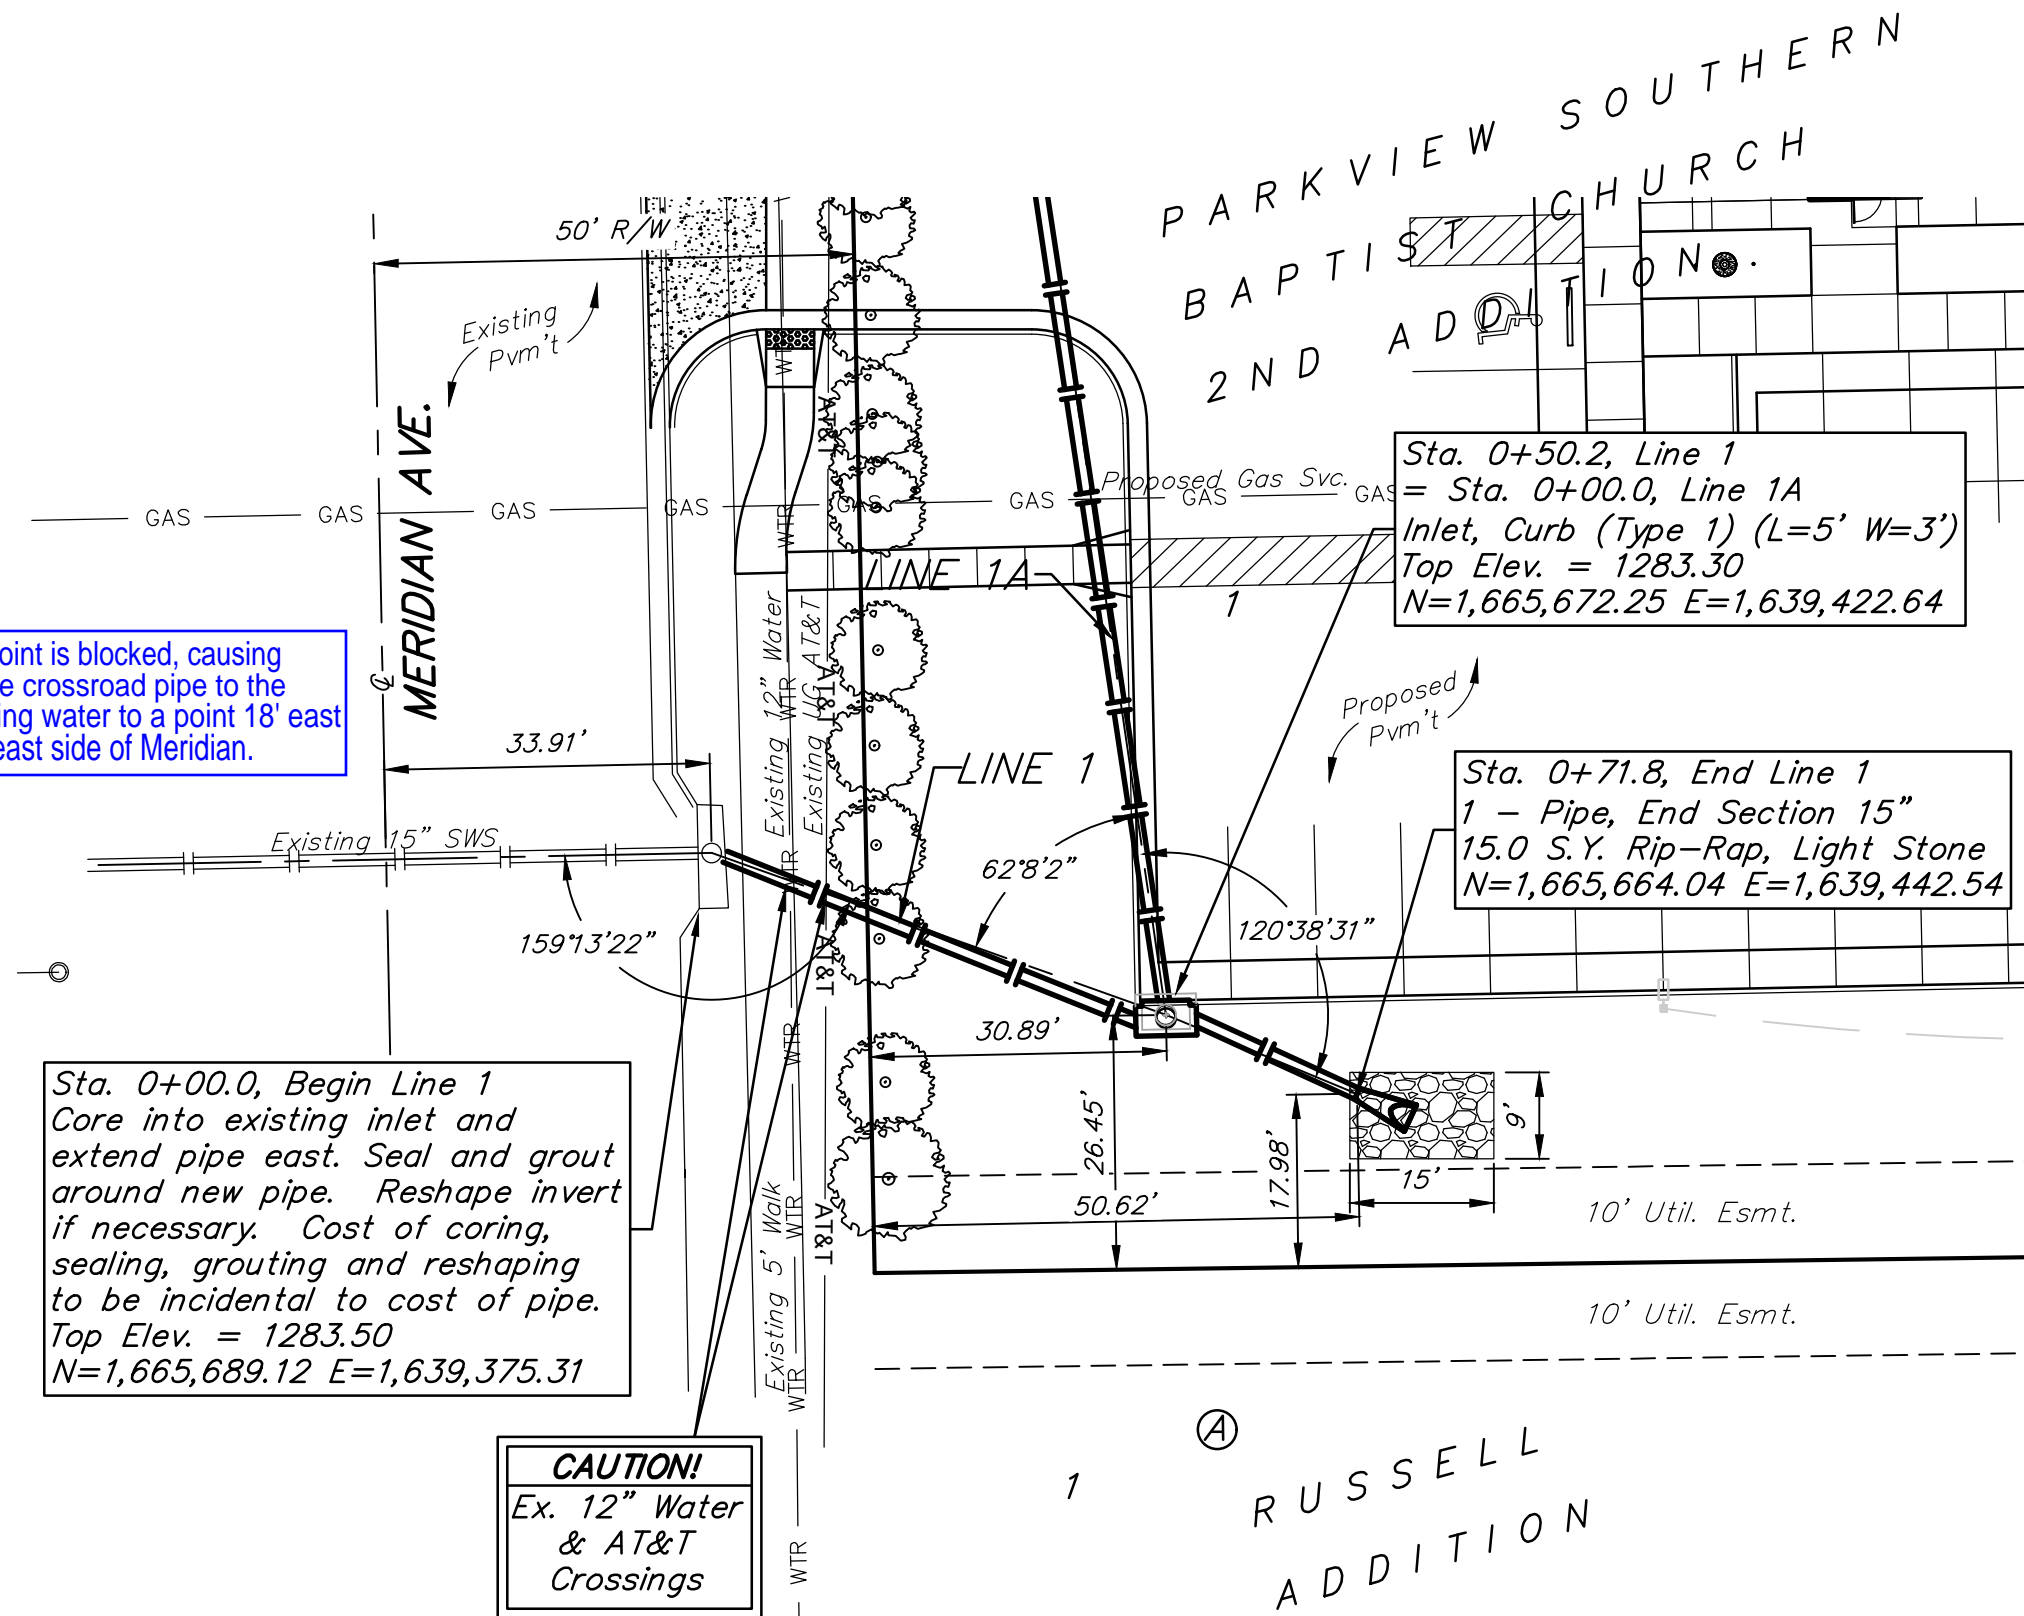 PARKVIEW SOUTHERN
BAPTIST CHURCH
2ND ADDITION
50' R/W
Existing
Pvm't
MERIDIAN AVE.
GAS GAS GAS GAS GAS GAS GAS GAS
Proposed Gas Svc.
WTR
AT&T
Sta. 0+50.2, Line 1
= Sta. 0+00.0, Line 1A
Inlet, Curb (Type 1) (L=5' W=3')
Top Elev. = 1283.30
N=1,665,672.25 E=1,639,422.64
LINE 1A
1
oint is blocked, causing
e crossroad pipe to the
ing water to a point 18' east
east side of Meridian.
℄
Existing 12" Water
Existing UG AT&T
WTR
AT&T
Proposed
Pvm't
33.91'
LINE 1
Sta. 0+71.8, End Line 1
1 - Pipe, End Section 15"
15.0 S.Y. Rip-Rap, Light Stone
N=1,665,664.04 E=1,639,442.54
Existing 15" SWS
WTR
62°8'2"
120°38'31"
159°13'22"
AT&T
WTR
30.89'
26.45'
17.98'
9'
15'
50.62'
10' Util. Esmt.
Sta. 0+00.0, Begin Line 1
Core into existing inlet and
extend pipe east. Seal and grout
around new pipe. Reshape invert
if necessary. Cost of coring,
sealing, grouting and reshaping
to be incidental to cost of pipe.
Top Elev. = 1283.50
N=1,665,689.12 E=1,639,375.31
Existing 5' Walk
WTR
AT&T
WTR
10' Util. Esmt.
A
1
RUSSELL
ADDITION
CAUTION!
Ex. 12" Water
& AT&T
Crossings
WTR